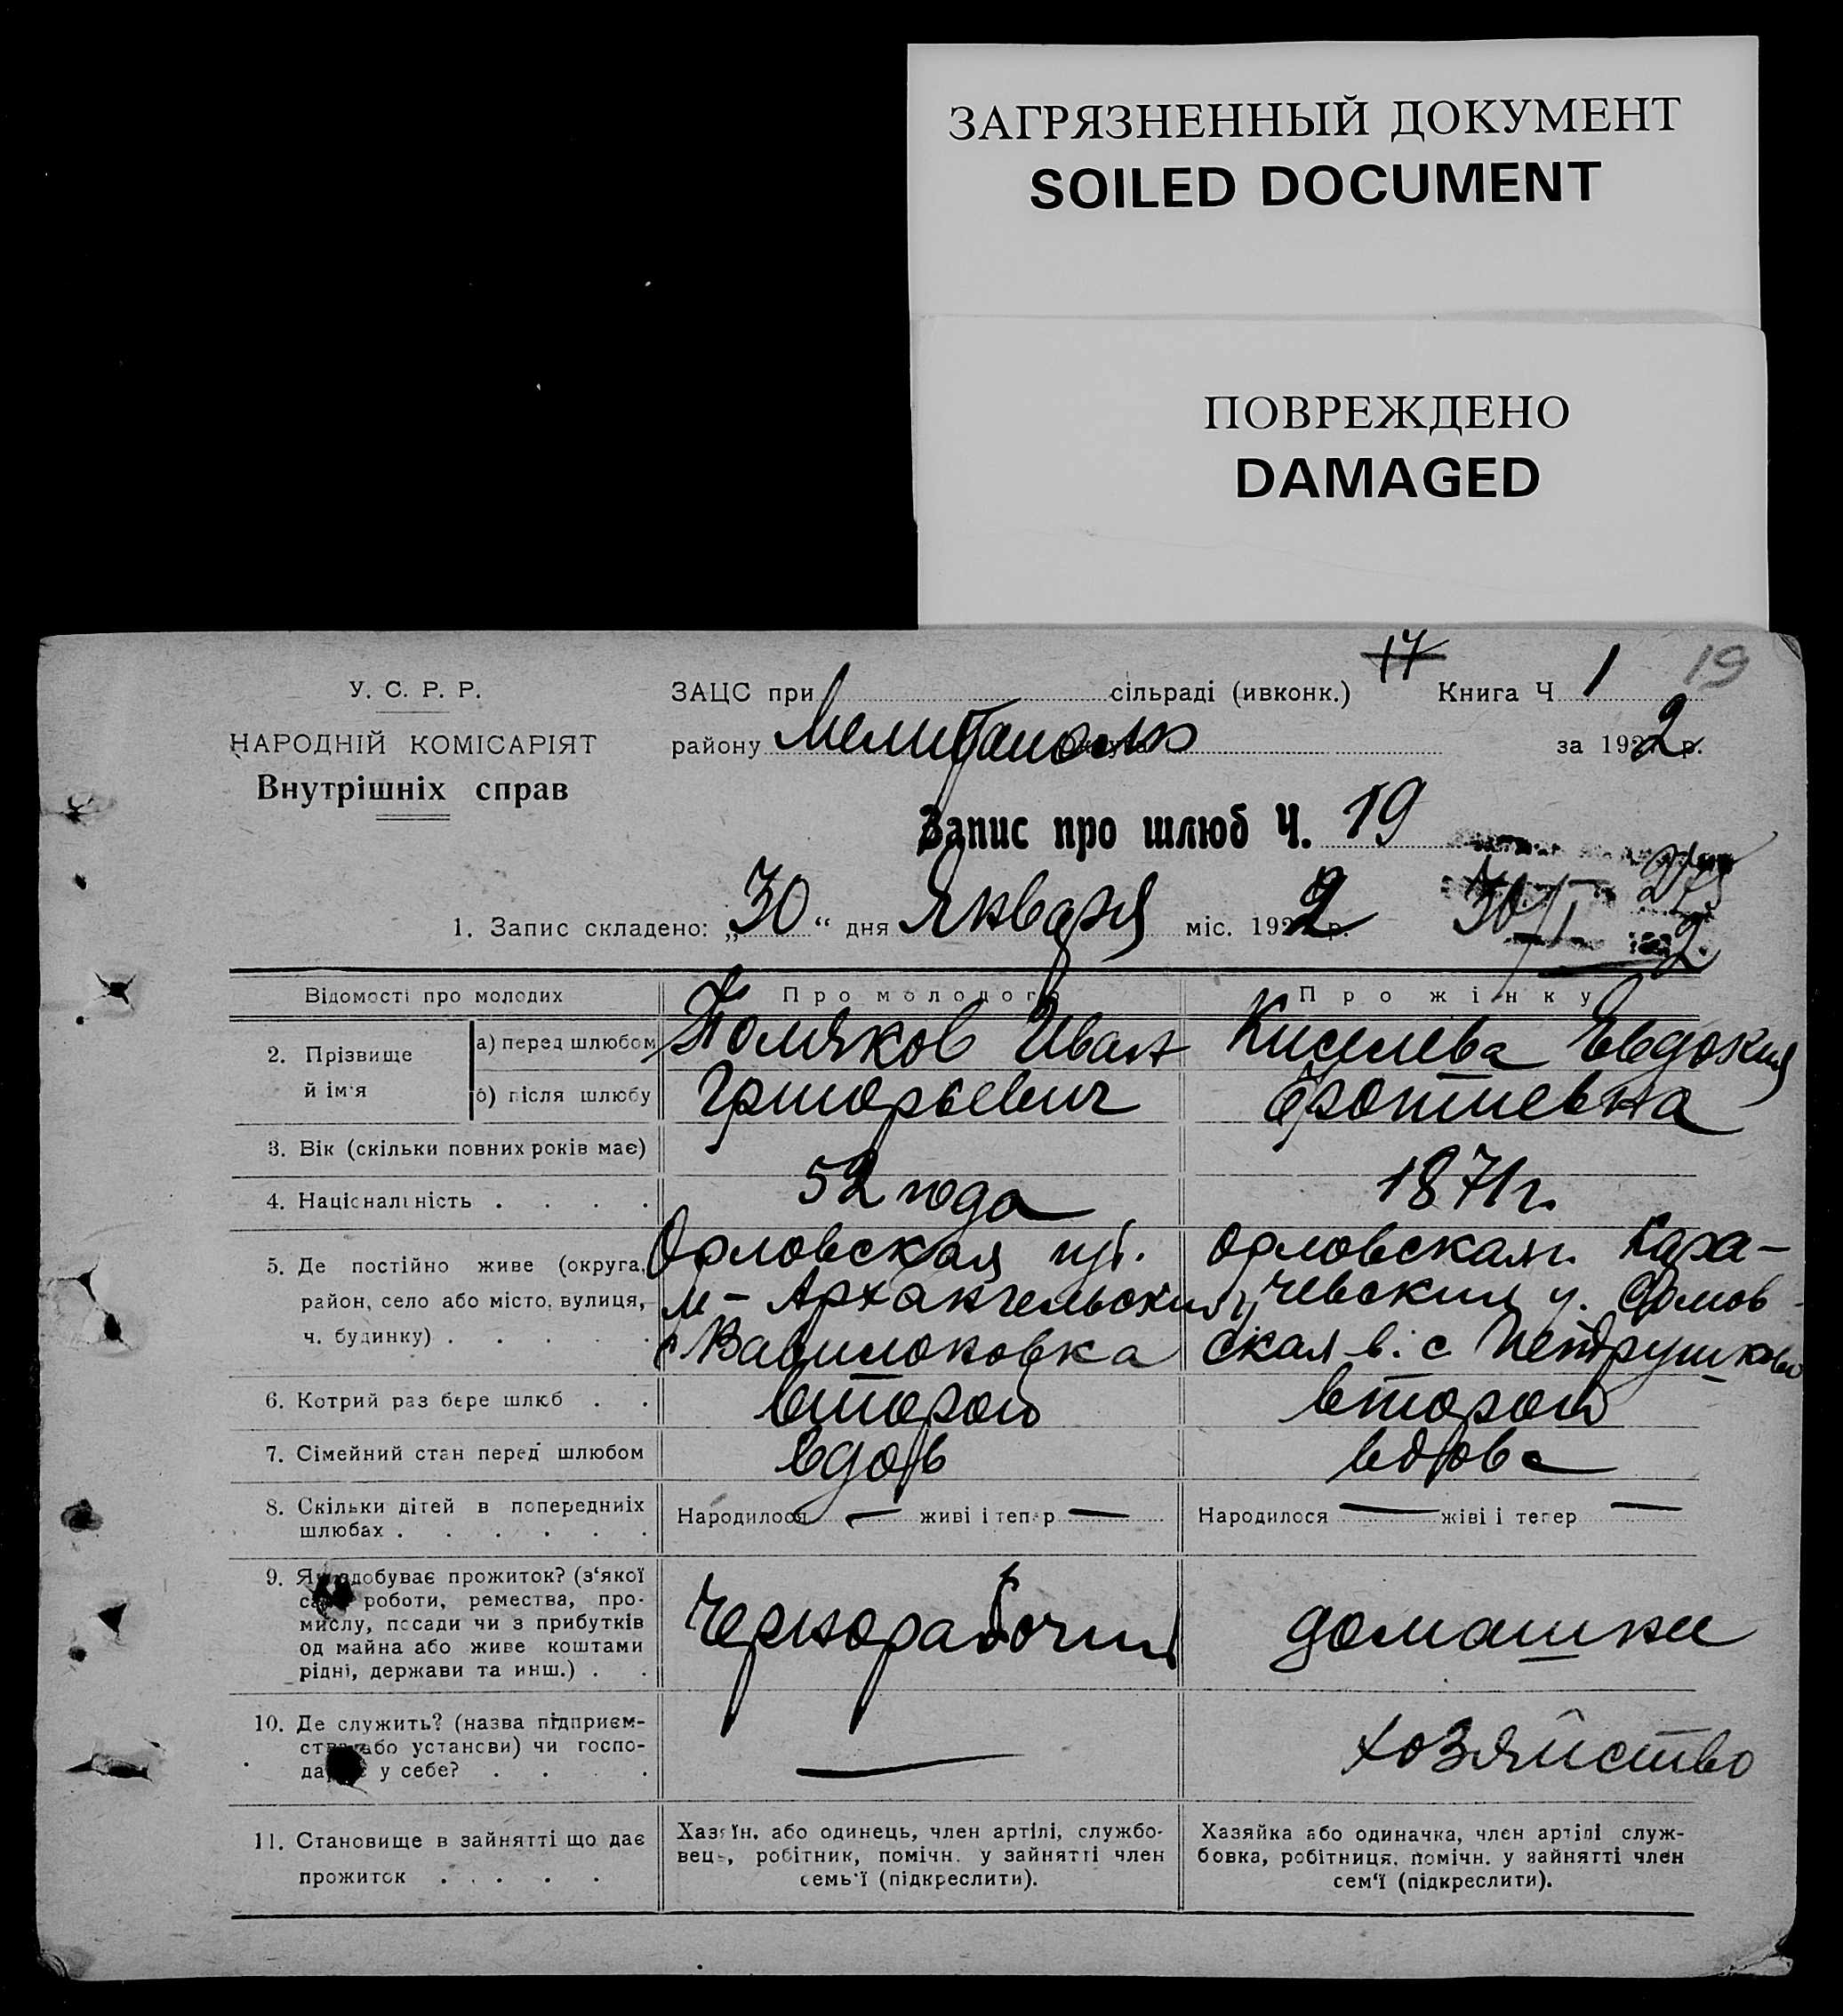 ЗАГРЯЗНЕННЫЙ ДОКУМЕНТ
SOILED DOCUMENT
ПОВРЕЖДЕНО
DAMAGED
17 19
У. С. Р. Р.
ЗАЦС при сільраді (ивконк.) Книга Ч 1
НАРОДНІЙ КОМІСАРІЯТ
району Мелитополь за 1922 р.
Внутрішніх справ
Запис про шлюб Ч. 19
1. Запис складено: „30“ дня Января міс. 1922 р. 30/I 2
Відомості про молодих Про молодого Про жінку
2. Прізвище й ім'я а) перед шлюбом Поляков Иван Киселева Евдокия
б) після шлюбу Григорьевич
3. Вік (скільки повних років має)
4. Національність 52 года 1871 г.
5. Де постійно живе (округа, Орловская губ. Орловская г. Кара-
район, село або місто, вулиця, М-Архангельский чевский у.
ч. будинку) ская в. с Петрушково
6. Котрий раз бере шлюб второй второй
7. Сімейний стан перед шлюбом вдов вдова
8. Скільки дітей в попередниіх Народилося — живі і тепер — Народилося — жіві і тепер —
шлюбах
9. Як здобуває прожиток? (з'якої
саме роботи, ремества, про-
мислу, посади чи з прибутків Чернорабочий домашнее
од майна або живе коштами
рідні, держави та инш.)
10. Де служить? (назва підприєм-
ства або установи) чи госпо- — хозяйство
дарює у себе?
11. Становище в зайнятті що дає Хазяїн, або одинець, член артілі, службо- Хазяйка або одиначка, член артілі служ-
прожиток вець, робітник, помічн. у зайнятті член бовка, робітниця, помічн. у зайнятті член
семь'ї (підкреслити). сем'ї (підкреслити).